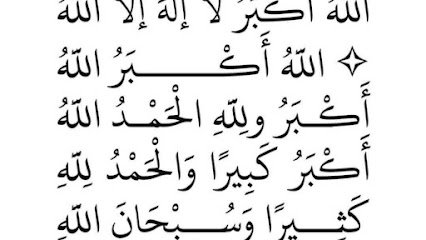 اللهُ أَكْبَرُ لَا إِلَهَ إِلَّا اللهُ
✧ اللهُ أَكْبَرُ اللهُ
أَكْبَرُ ولِلّهِ الْحَمْدُ اللهُ
أَكْبَرُ كَبِيرًا وَالْحَمْدُ لِلّهِ
كَثِيرًا وَسُبْحَانَ اللهِ